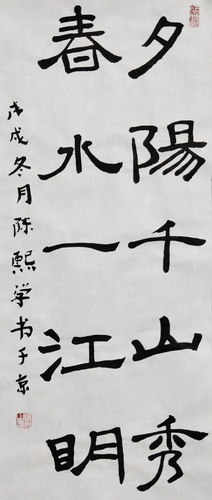 夕陽千山秀
春水一江明
戊戌冬月陈熙学书于京